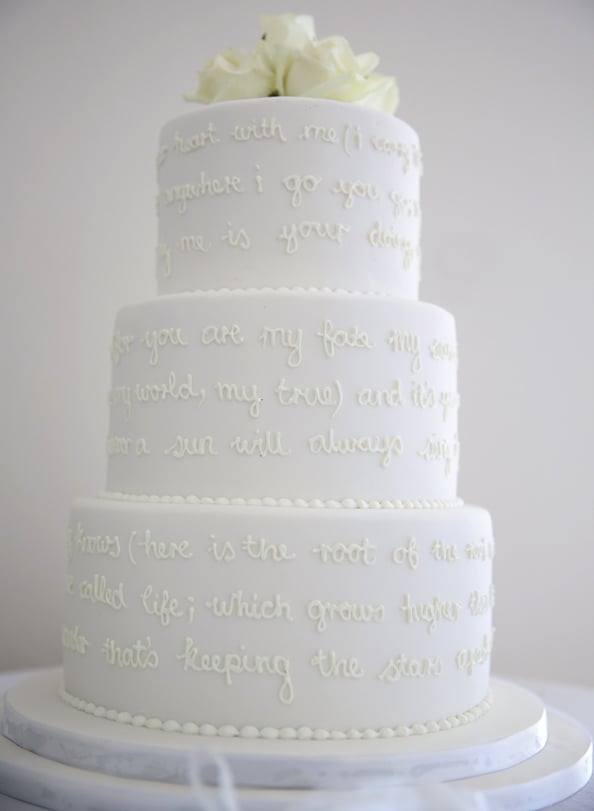 heart with me (i carry it
anywhere i go you go,
me is your doing
for you are my fate my
my world, my true) and it's you
a sun will always sing is
knows (here is the root of the root
called life; which grows higher than
wonder that's keeping the stars apart